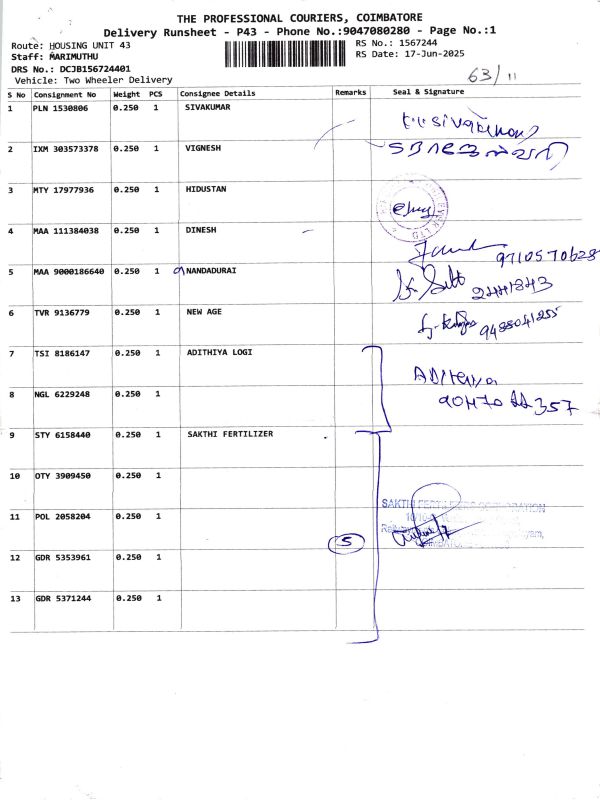 THE PROFESSIONAL COURIERS, COIMBATORE
Delivery Runsheet - P43 - Phone No.:9047080280 - Page No.:1
Route: HOUSING UNIT 43
RS No.: 1567244
Staff: MARIMUTHU
RS Date: 17-Jun-2025
DRS No.: DCJB156724401
Vehicle: Two Wheeler Delivery
63/11
S No Consignment No Weight PCS Consignee Details Remarks Seal & Signature
1 PLN 1530806 0.250 1 SIVAKUMAR
2 IXM 303573378 0.250 1 VIGNESH
3 MTY 17977936 0.250 1 HIDUSTAN
4 MAA 111384038 0.250 1 DINESH
9710570628
5 MAA 9000186640 0.250 1 NANDADURAI
2441843
6 TVR 9136779 0.250 1 NEW AGE
9488041255
7 TSI 8186147 0.250 1 ADITHIYA LOGI
8 NGL 6229248 0.250 1
9 STY 6158440 0.250 1 SAKTHI FERTILIZER
10 OTY 3909450 0.250 1
SAKTHI FERTILIZERS CORPORATION
11 POL 2058204 0.250 1
5
12 GDR 5353961 0.250 1
13 GDR 5371244 0.250 1